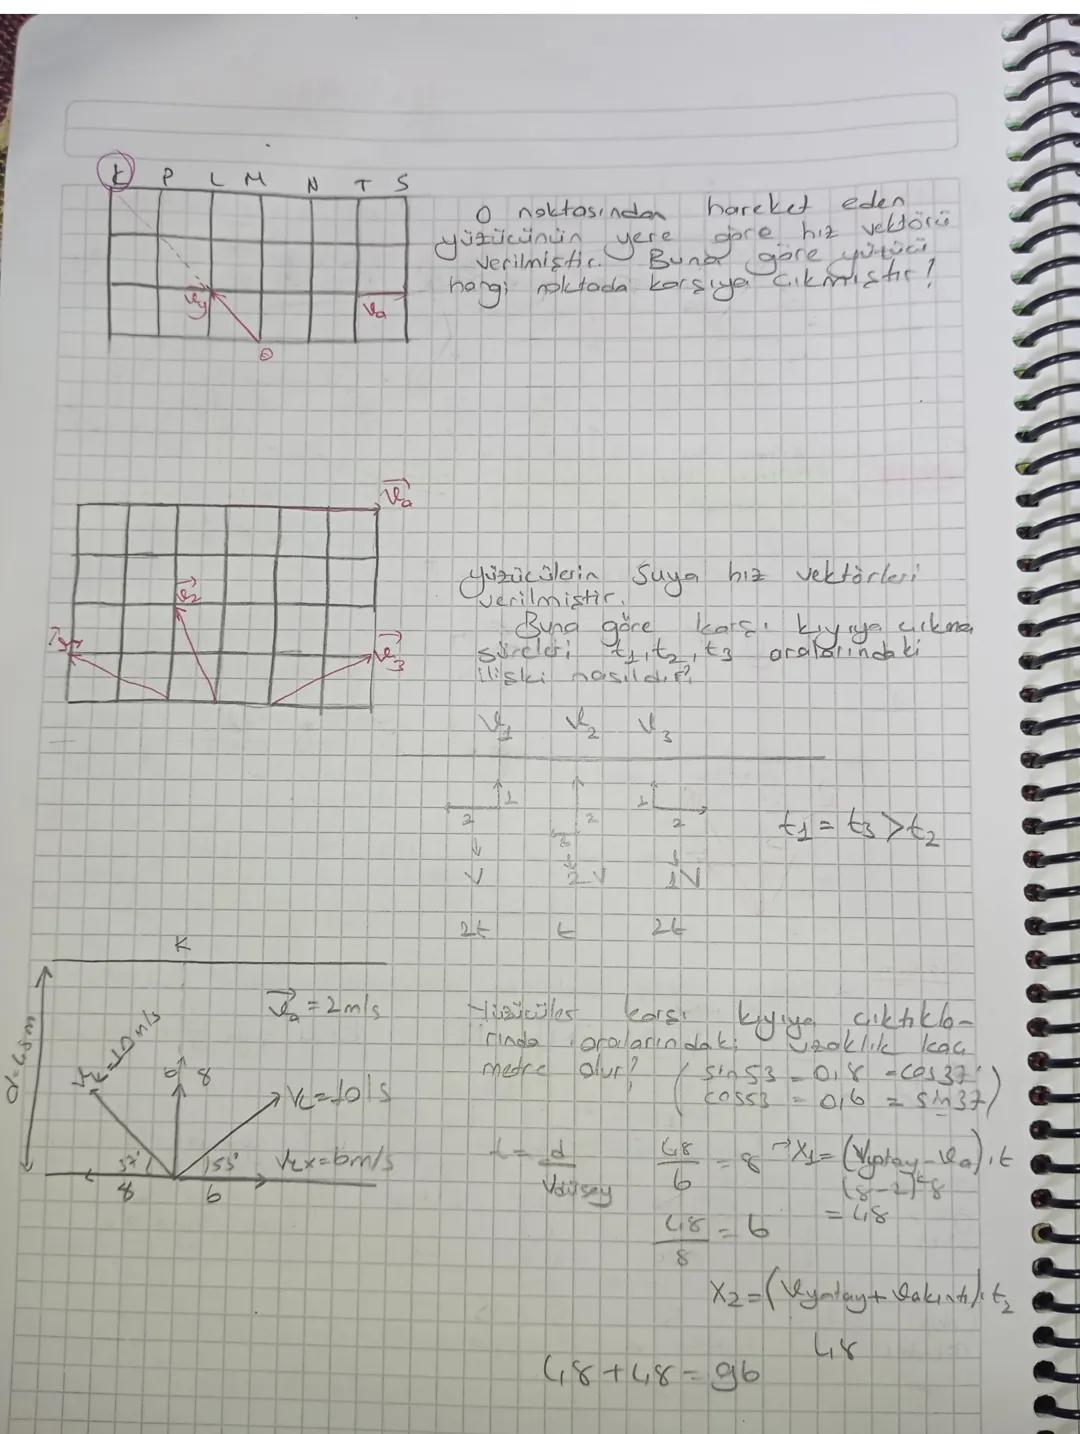 K P L M N T S
O noktasından hareket eden
yüzücünün yere göre hız vektörü
verilmiştir. Buna göre yüzücü
hangi noktada karşıya çıkmıştır?
Vy
Va
O
Va
V2
V3
yüzücülerin Suya hız vektörleri
verilmiştir.
Buna göre karşı kıyıya çıkma
süreleri t1, t2, t3 aralarındaki
ilişki nasıldır?
V1 V2 V3
1 2 2 1 2
t1 = t3 > t2
V 2V 1V
2t t 2t
K
Va = 2 m/s
d=48m
VK=10 m/s
6 8
VL=10/s
37° 53° VLx=6m/s
8 6
Yüzücüler karşı kıyıya çıktıkla-
rında aralarındaki uzaklık kaç
metre olur? (sin53 = 0,8 = cos37
cos53 = 0,6 = sin37)
t = d / Vdüşey
48/6 = 8 → X1 = (Vyatay - Va).t
(8-2)*8
= 48
48/8 = 6
X2 = (Vyatay + Vakıntı).t2
48
48 + 48 = 96